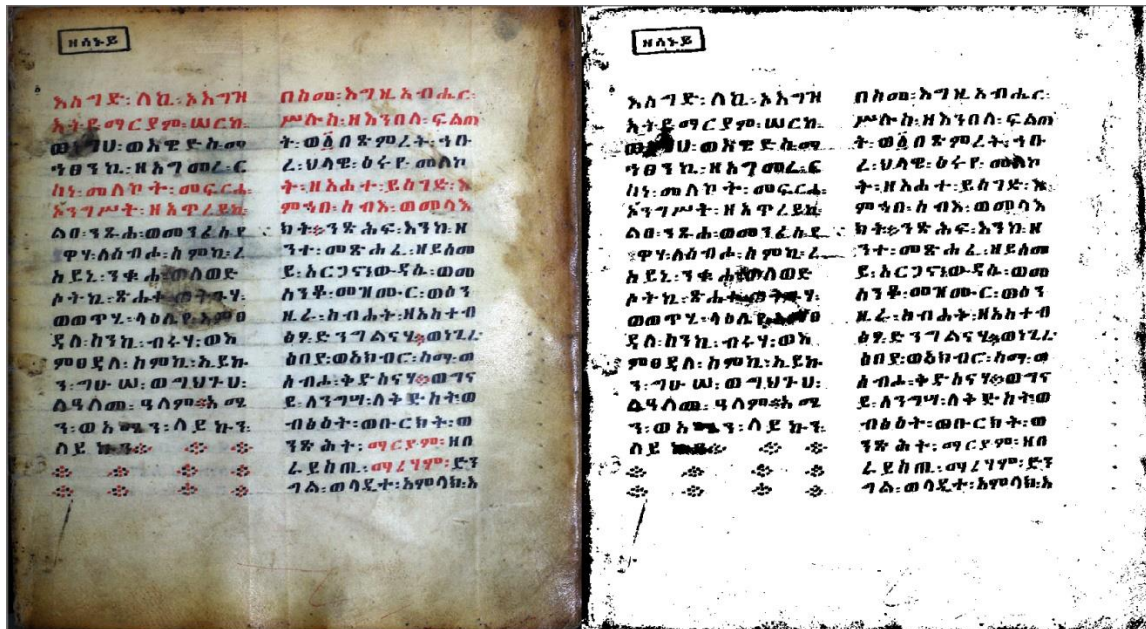 ዘሰኑይ
እሰግድ፡ለኪ፡ኦእግዝ
እትየ ማርያም፡ሠርከ፡
ወነግሀ፡ወእዌድስ፡ማ
ኅፀንኪ፡ዘአግመረ፡ር
ስነ፡መለኮት፡መፍርሔ፡
ኦንግሥት፡ዘአጥረይኪ፡
ልበ፡ንጹሐ፡ወመንፈሰ፡የ
ዋሃ፡ለሰብሖ፡ስምኪ፡ረ
ስይኒ፡ንቁሐ፡ወለወድ
ሶትኪ፡ጽሑቀ፡ወትጉሃ፡
ወወጥሂ፡ላዕሌየ፡እምፀ
ዳለ፡ስንኪ፡ብሩሃ፡ወእ
ምፀዳለ፡ስምኪ፡ኢይኩ
ን፡ግሁሠ፡ወግህጉሀ፡
ለዓለመ፡ዓለም፨አሜ
ን፡ወአሜን፡ለይኩን፡
ለይኩን፨
በስመ፡እግዚአብሔር፡
ሥሉስ፡ዘእንበለ፡ፍልጠ
ት፡ወ፩በጽምረት፡ኅቡ
ረ፡ህላዌ፡ዕሩየ፡መለኮ
ት፡ዘአሐተ፡ይሰገድ፡እ
ምኀበ፡ሰብእ፡ወመላእ
ክት፨ንጽሕፍ፡እንከ፡ዘ
ንተ፡መጽሐፈ፡ዘይሰመ
ይ፡አርጋኖነ፡ውዳሴ፡ወመ
ሰንቆ፡መዝሙር፡ወዕን
ዚራ፡ስብሐት፡ዘአስተብ
ፅዖ፡ድንግልናሃ፨ወነጊረ፡
ዕበያ፡ወአክብሮ፡ስማ፡ወ
ሰብሖ፡ቅድስናሃ፨ወግና
ይ፡ለንግሣ፡ለቅድስት፡ወ
ብፅዕት፡ወቡርክት፡ወ
ንጽሕት፡ማርያም፡ዘበ
ራይስጢ፡ማሪሃም፡ድን
ግል፡ወላዲተ፡አምላክ፡እ